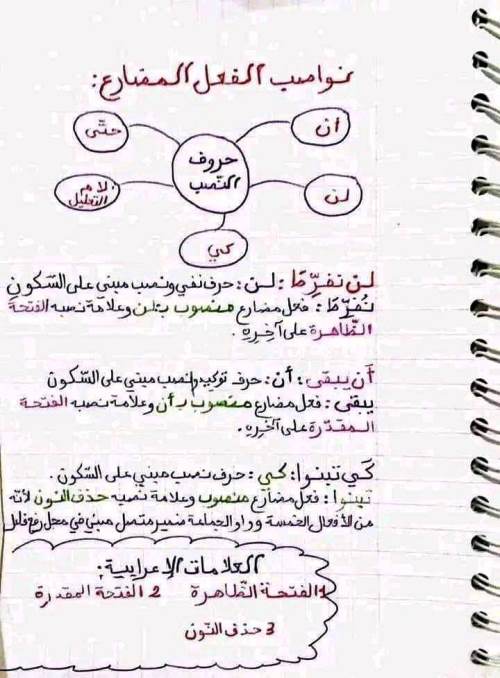 نواصب الفعل المضارع:
أن
حتّى
حروف النّصب
لن
لام التعليل
كي
لن نفرِّطَ: لن: حرف نفي ونصب مبني على السّكون
نُفرِّطَ: فعل مضارع منصوب بـلن وعلامة نصبه الفتحة
الظّاهرة على آخِرِه.
أن يبقى: أن: حرف توكيد ونصب مبني على السّكون
يبقى: فعل مضارع منصوب بـأن وعلامة نصبه الفتحة
المقدّرة على آخِرِه.
كَي تبنوا: كَي: حرف نصب مبني على السّكون.
تبنوا: فعل مضارع منصوب وعلامة نصبه حذف النون لأنّه
من الأفعال الخمسة وواو الجماعة ضمير متصل مبني في محل رفع فاعل
العلامات الإعرابية:
1 الفتحة الظّاهرة 2 الفتحة المقدرة
3 حذف النّون